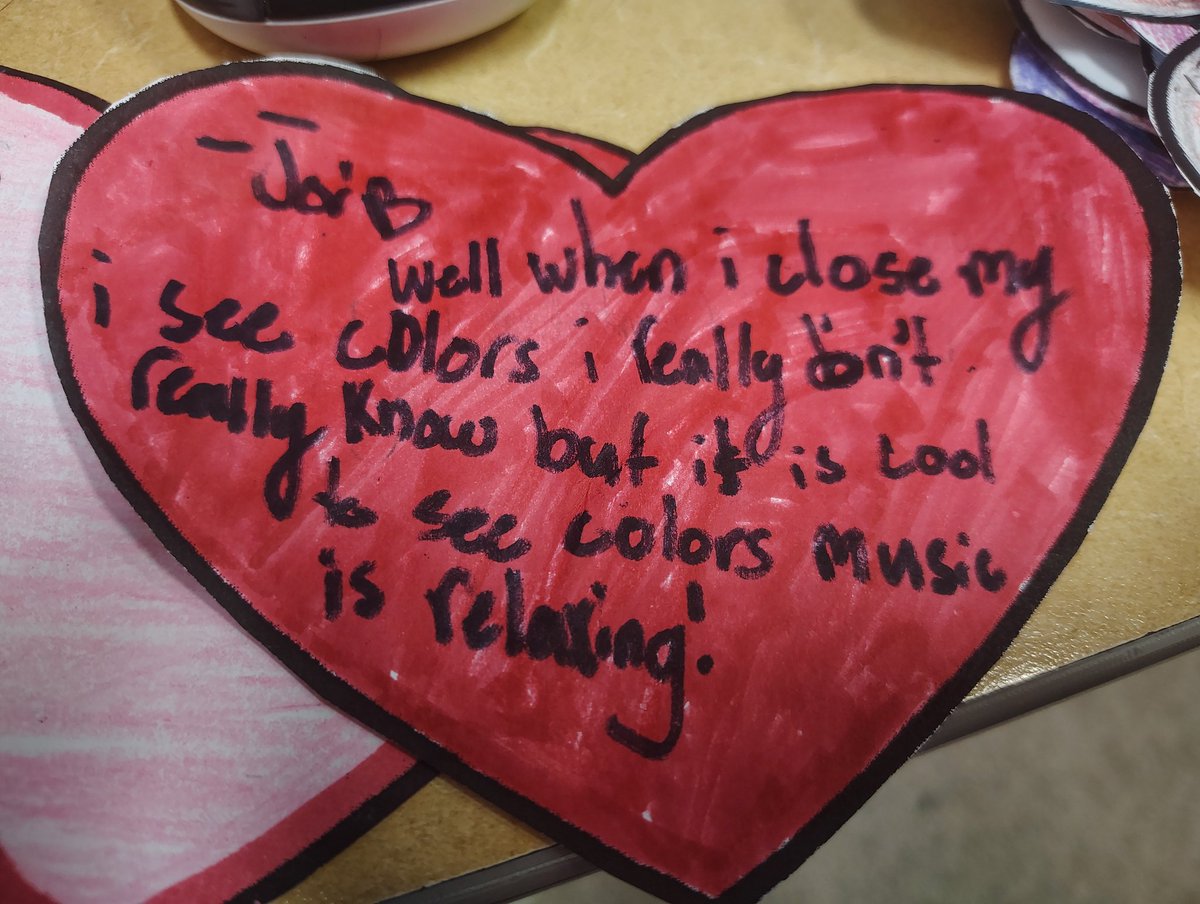 Well when i close my
i see colors i really don't
really know but it is cool
to see colors music
is relaxing!